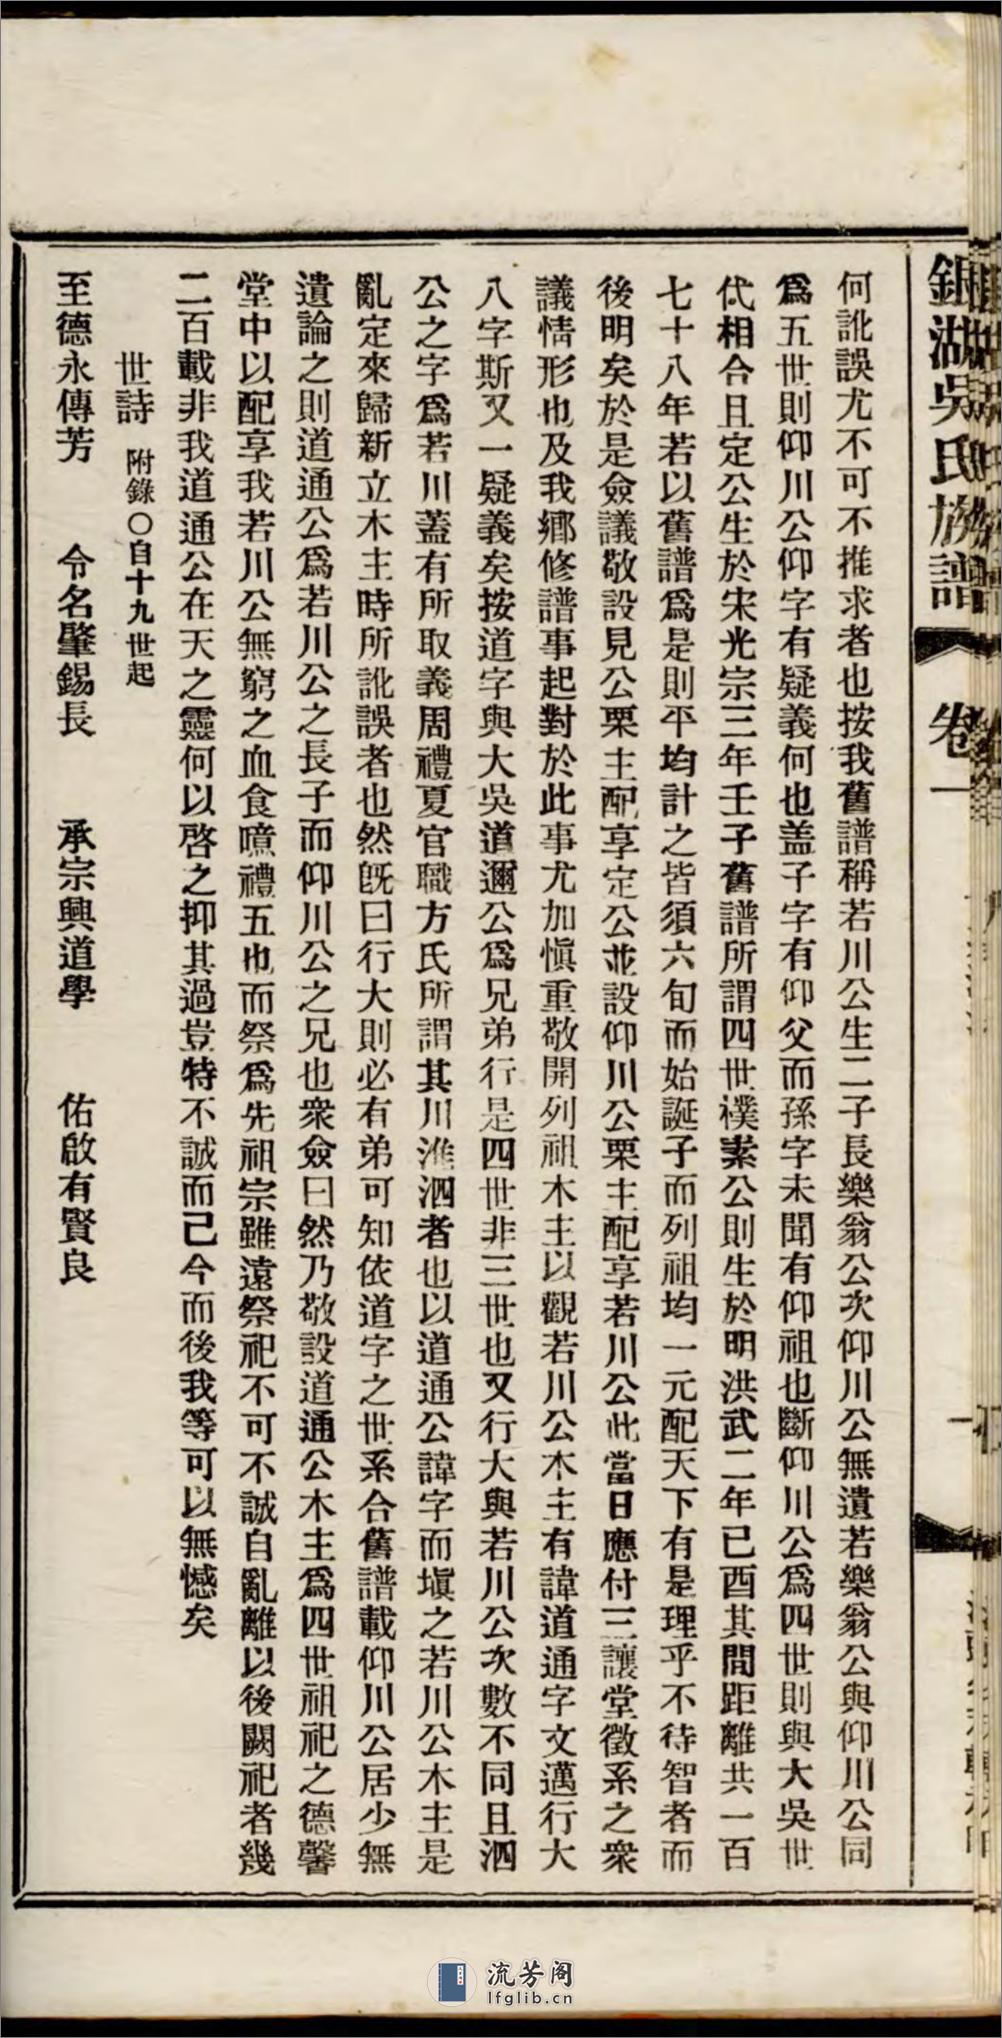 銀湖吳氏族譜 卷一
何訛誤尤不可不推求者也按我舊譜稱若川公生二子長樂翁公次仰川公無遺若樂翁公與仰川公同
爲五世則仰川公仰字有疑義何也盖子字有仰父而孫字未聞有仰祖也斷仰川公爲四世則與大吳世
代相合且定公生於宋光宗三年壬子舊譜所謂四世樸素公則生於明洪武二年己酉其間距離共一百
七十八年若以舊譜爲是則平均計之皆須六旬而始誕子而列祖均一元配天下有是理乎不待智者而
後明矣於是僉議敬設見公栗主配享定公並設仰川公栗主配享若川公此當日應付三讓堂徵系之衆
議情形也及我鄉修譜事起對於此事尤加愼重敬開列祖木主以觀若川公木主有諱道通字文邁行大
八字斯又一疑義矣按道字與大吳道邇公爲兄弟行是四世非三世也又行大與若川公次數不同且泗
公之字爲若川蓋有所取義周禮夏官職方氏所謂其川淮泗者也以道通公諱字而塡之若川公木主是
亂定來歸新立木主時所訛誤者也然旣曰行大則必有弟可知依道字之世系合舊譜載仰川公居少無
遺論之則道通公爲若川公之長子而仰川公之兄也衆僉曰然乃敬設道通公木主爲四世祖祀之德馨
堂中以配享我若川公無窮之血食噫禮五也而祭爲先祖宗雖遠祭祀不可不誠自亂離以後闕祀者幾
二百載非我道通公在天之靈何以啓之抑其過豈特不誠而已今而後我等可以無憾矣
世詩 附錄〇自十九世起
至德永傳芳 令名肇錫長 承宗興道學 佑啟有賢良
流芳阁
lfglib.cn